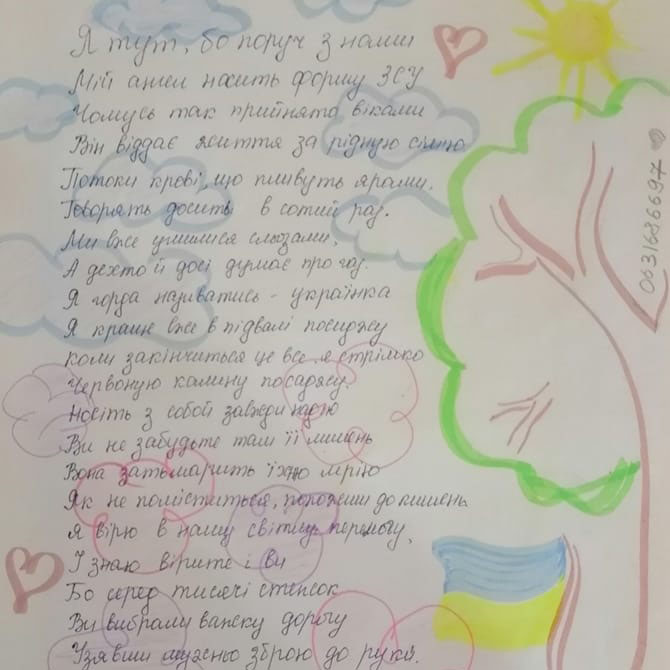 Я тут, бо поруч з нами
Мій ангел носить форму ЗСУ
Чомусь так прийнято віками
Він віддає життя за рідную сімю
Потоки крові, що пливуть ярами.
Говорять досить в сотий раз.
Ми вже умилися сльозами,
А дехто й досі думає про газ.
Я горда називатись - українка
Я краще вже в підвалі посиджу
коли закінчиться це все я стрімко
Червоную калину посаджу.
Носіть з собой завжди надію
Ви не забудьте там її лишень
Вона затьмарить їхню мрію
Як не поміститься, положиш до кишень
я вірю в нашу світлу перемогу,
І знаю вірите і ви
Бо серед тисячі стежок
Ви вибрали важку дорогу
Узявши мужньо зброю до руки.
0631686697